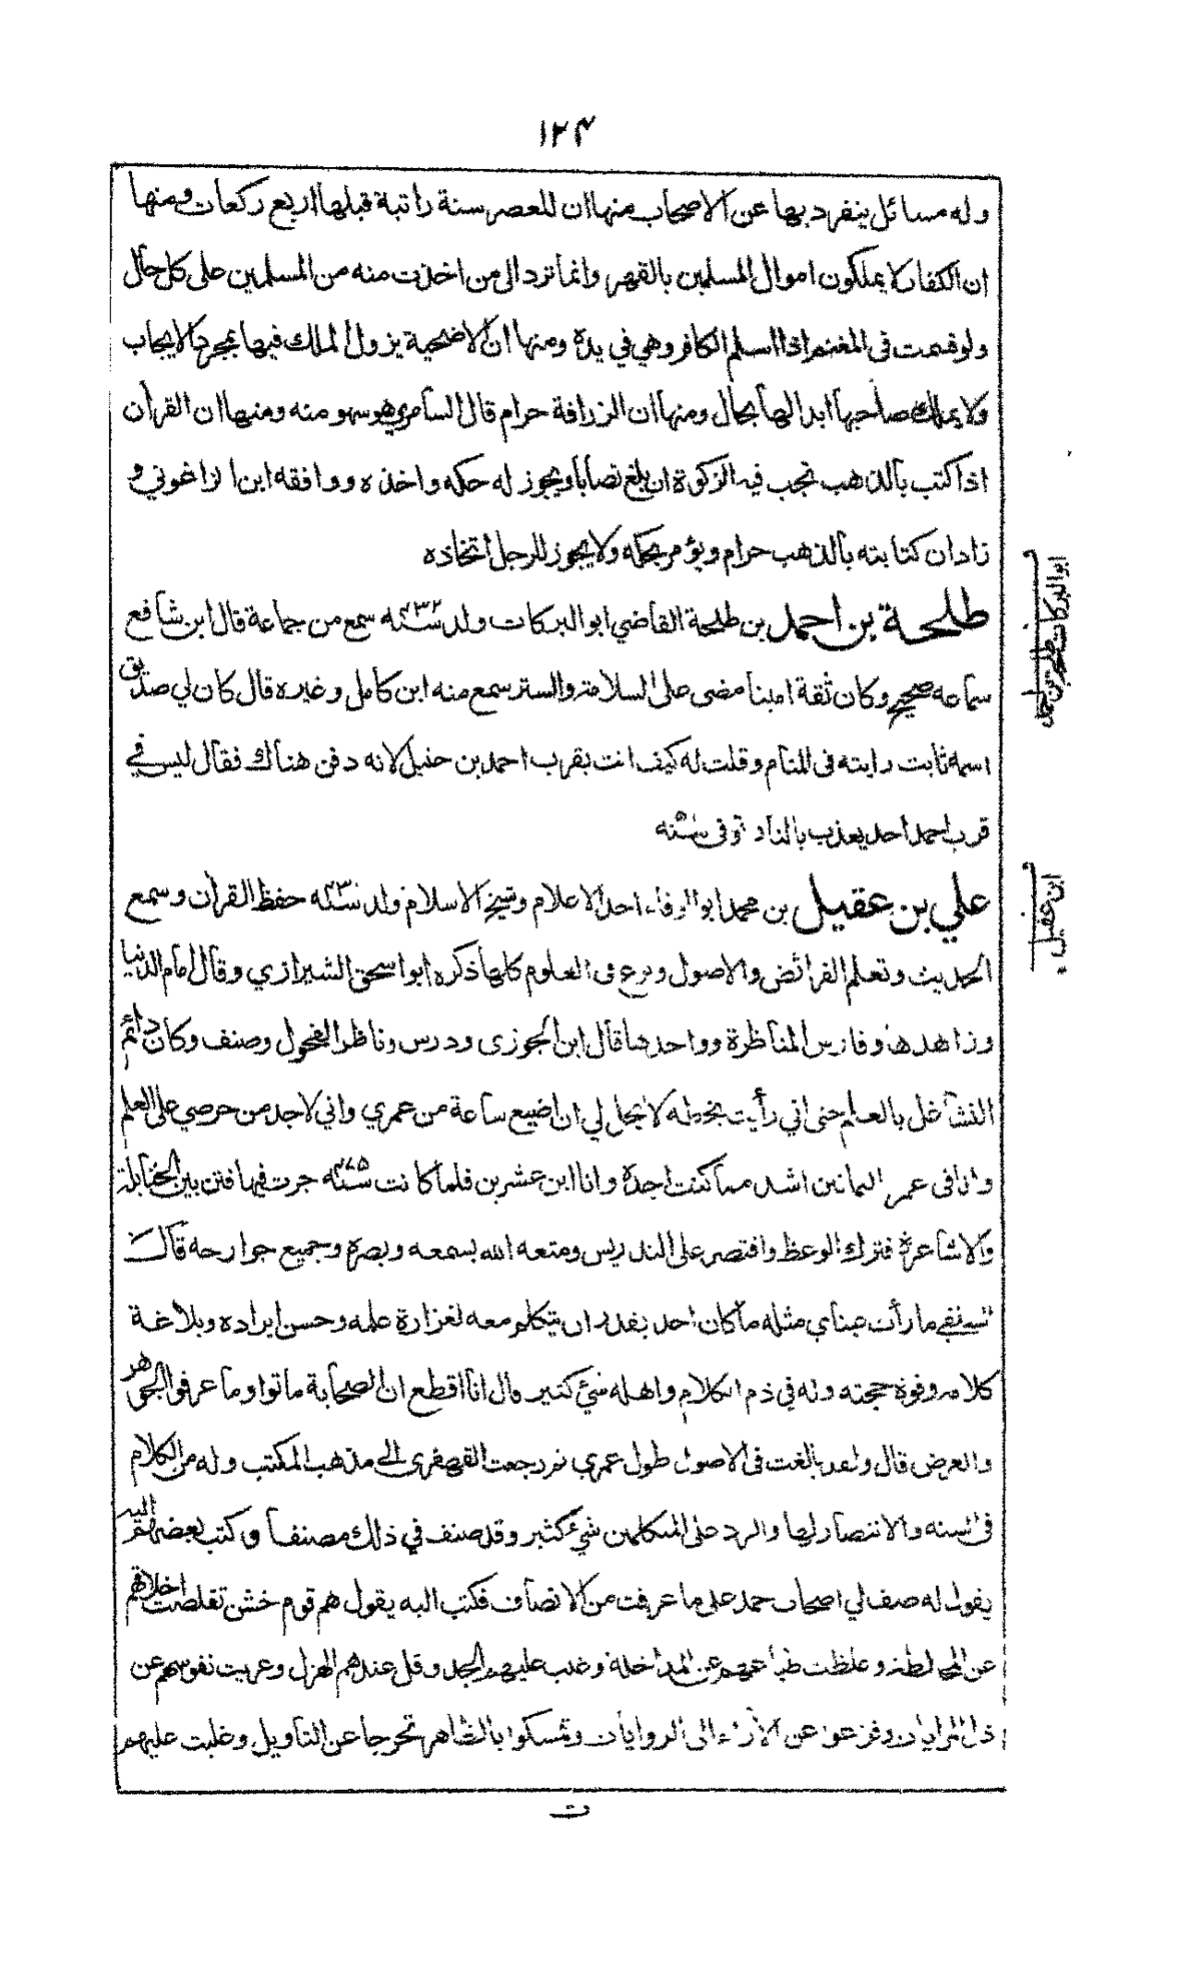 ١٢٤
وله مسائل ينفرد بها عن الاصحاب منها ان للعصر سنة راتبة قبلها اربع ركعات ومنها
ان الكفار لا يملكون اموال المسلمين بالقهر وانما ترد الى من اخذت منه من المسلمين على كل حال
ولو قسمت فى المغنم اذا اسلم الكافر وهي في يده ومنها ان الاضحية يزول الملك فيها بمجرد الايجاب
ولا يملك صاحبها ابدالها بحال ومنها ان الزرافة حرام قال السامري هو سهو منه ومنها ان القران
اذا كتب بالذهب تجب فيه الزكوة ان بلغ نصابا ويجوز له حكه واخذه ووافقه ابن الزاغوني و
زاد ان كتابته بالذهب حرام ويؤمر بحكه ولا يجوز للرجل اتخاذه
طلحة بن احمد بن طلحة القاضي ابو البركات ولد سنة ٤٣٢ سمع من جماعة قال ابن شافع
سماعه صحيح وكان ثقة امينا مضى على السلامة والستر سمع منه ابن كامل وغيره قال كان لي صديق
اسمه ثابت رايته فى المنام وقلت له كيف انت بقرب احمد بن حنبل لانه دفن هناك فقال ليس في
قرب احمد احد يعذب بالنار توفى سنة
علي بن عقيل بن محمد ابو الوفاء احد الاعلام وشيخ الاسلام ولد سنة حفظ القران وسمع
الحديث وتعلم الفرائض والاصول وبرع فى العلوم كلها ذكره ابو اسحق الشيرازي وقال امام الدنيا
وزاهدها وفارس المناظرة وواحدها قال ابن الجوزى ودرس وناظر الفحول وصنف وكان دائم
التشاغل بالعلم حتى اني رأيت بخطه لا يحل لي ان اضيع ساعة من عمري واني لاجد من حرصي على العلم
وانا فى عمر الثمانين اشد مما كنت اجده وانا ابن عشرين فلما كانت سنة ٤٧٥ جرت فيها فتن بين الحنابلة
والاشاعرة فترك الوعظ واقتصر على التدريس ومتعه الله بسمعه وبصره وجميع جوارحه قال
ما رأت عيناي مثله ما كان احد يقدر ان يتكلم معه لغزارة علمه وحسن ايراده وبلاغة
كلامه وقوة حجته وله في ذم الكلام واهله شيء كثير قال انا اقطع ان الصحابة ماتوا وما عرفوا الجوهر
والعرض قال ولقد بالغت فى الاصول طول عمري ثم رجعت القهقرى الى مذهب المكتب وله من الكلام
فى السنه والانتصار لها والرد على المتكلمين شيء كثير وقد صنف في ذلك مصنفا وكتب بعضهم اليه
يقول له صف لي اصحاب احمد على ما عرفت من الانصاف فكتب اليه يقول هم قوم خشن تقلصت اخلاقهم
عن المخالطة وغلظت طباعهم عن المداخلة وغلب عليهم الجد وقل عندهم الهزل وعريت نفوسهم عن
وفزعوا عن الآراء الى الروايات وتمسكوا بالظاهر تحرجا عن التاويل وغلبت عليهم
ابو البركات طلحة بن احمد
ابن عقيل